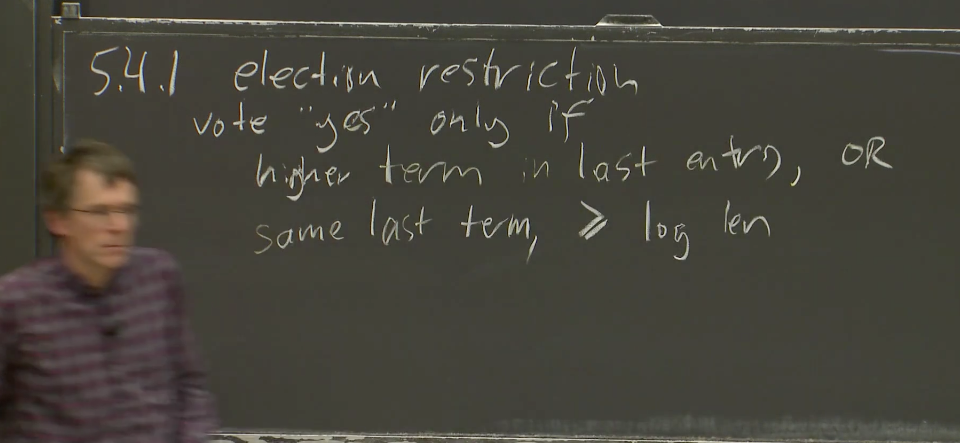 5.4.1 election restriction
vote "yes" only if
higher term in last entry, OR
same last term, ≥ log len